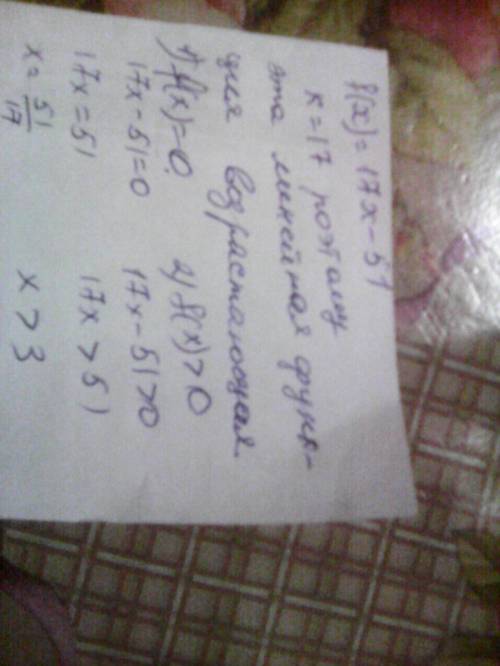 f(x) = 17x - 51
к = 17 поэтому
эта линейная функ-
ция возрастающая
1) f(x) = 0
17x - 51 = 0
17x = 51
x = 51/17
2) f(x) > 0
17x - 51 > 0
17x > 51
x > 3